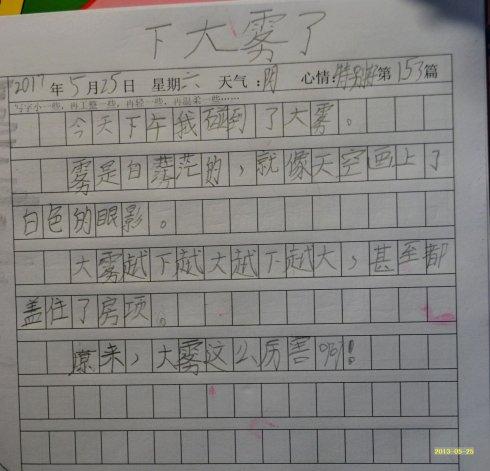 下大雾了
2017年5月25日 星期六 天气:阴 心情:特别好 第153篇
写字小一些,再工整一些,再轻一些,再温柔一些……
今天下午我碰到了大雾。
雾是白茫茫的,就像天空画上了
白色的眼影。
大雾越下越大越下越大,甚至都
盖住了房顶。
原来,大雾这么厉害啊!
2013-05-25